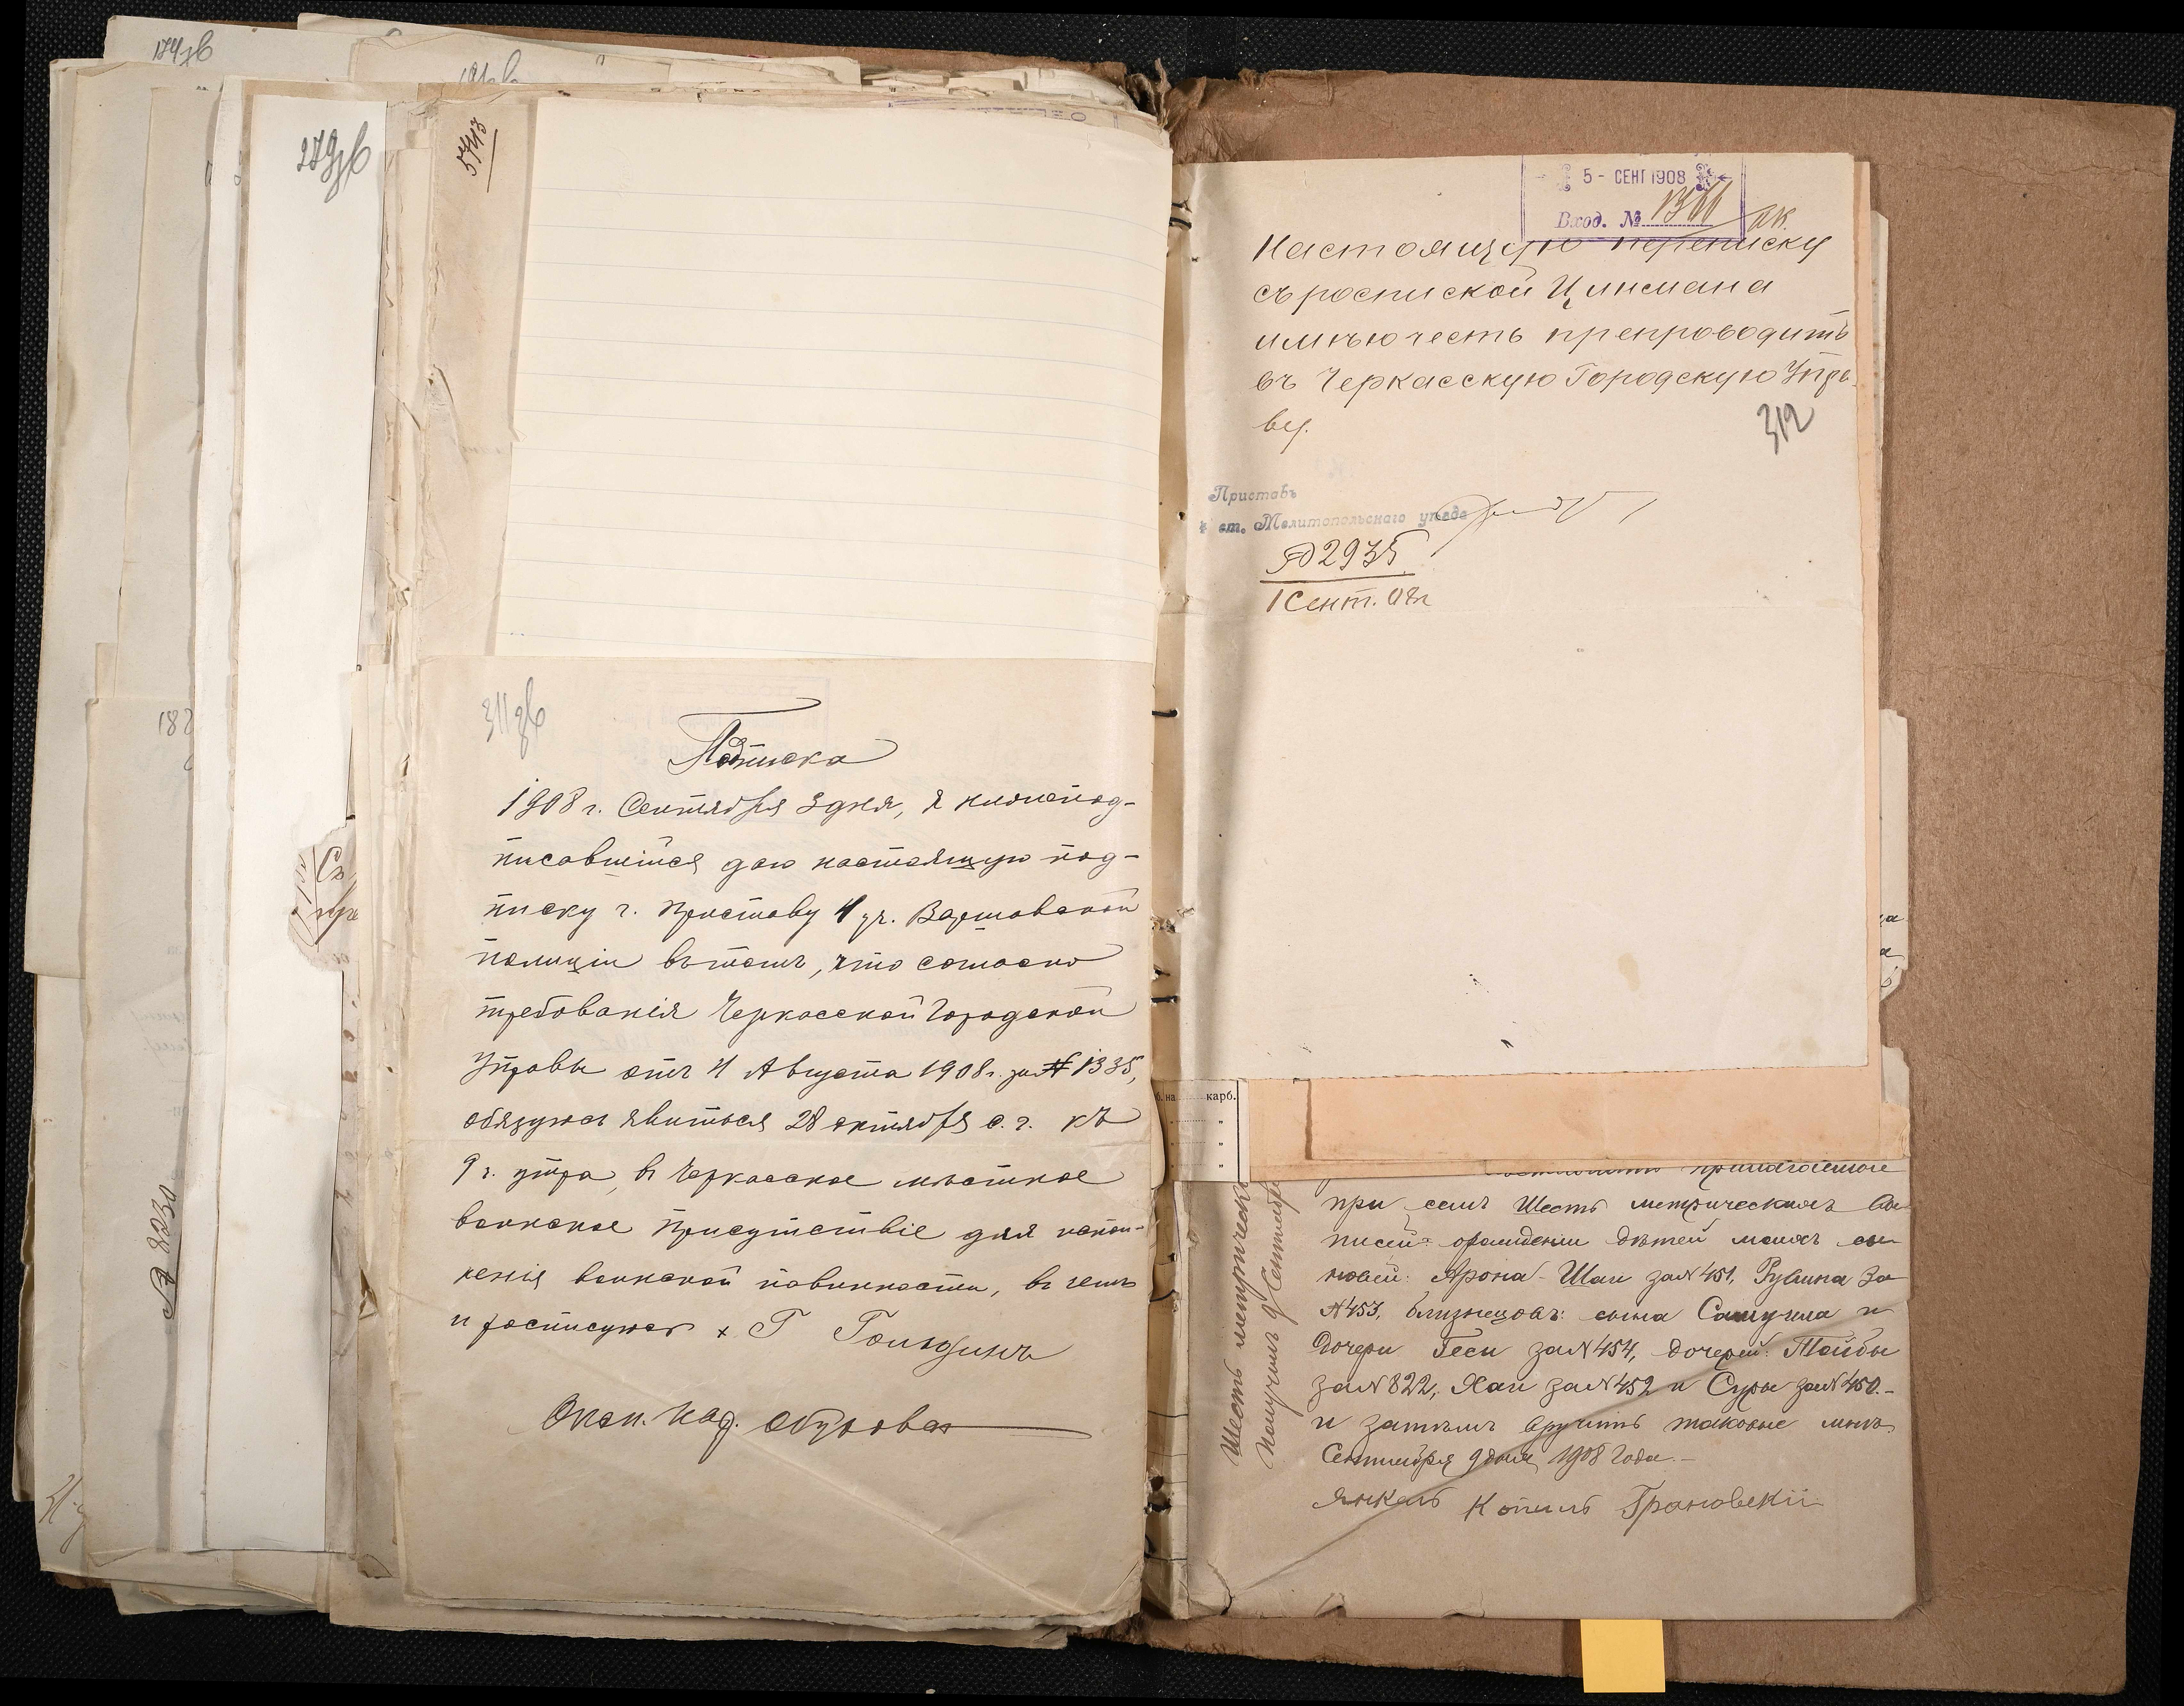 279зв
5713
311зв
Подписка
1908 г. Сентября 3 дня, я нижепод-
писавшійся даю настоящую под-
писку г. Приставу 4 уч. Варшавской
полиціи въ томъ, что согласно
требованія Черкасской Городской
Управы отъ 4 Августа 1908 г. за № 1335,
обязуюсь явиться 28 октября с. г. къ
9 ч. утра, въ Черкасское уѣстное
воинское Присутствіе для испол-
ненія воинской повинности, въ чемъ
и росписуюсь х Г
Окол. Над.
№ 8230
5 - СЕНТ 1908
Вход. №
Настоящую переписку
съ роспиской Цинмана
имѣю честь препроводить
въ Черкасскую Городскую Упра-
ву.
312
Приставъ
ст. Мелитопольскаго уѣзда
№ 2935
1 Сент. 08 г
б. на карб.
прилагаемые
при семъ Шесть метрическихъ вы-
писей о рожденіи дѣтей моихъ сы-
новей: Арона-Шаи за № 451, Рувина за
№ 453, близнецовъ: сына Самуила и
дочери Геси за № 454, дочерей: Тайбы
за № 822, Хаи за № 452 и Суры за № 450.-
и затѣмъ вручить таковые мнѣ.
Сентября 9 дня 1908 года.-
Янкель Копель Грановскій
Шесть метрическихъ
Получилъ 9 Сентября